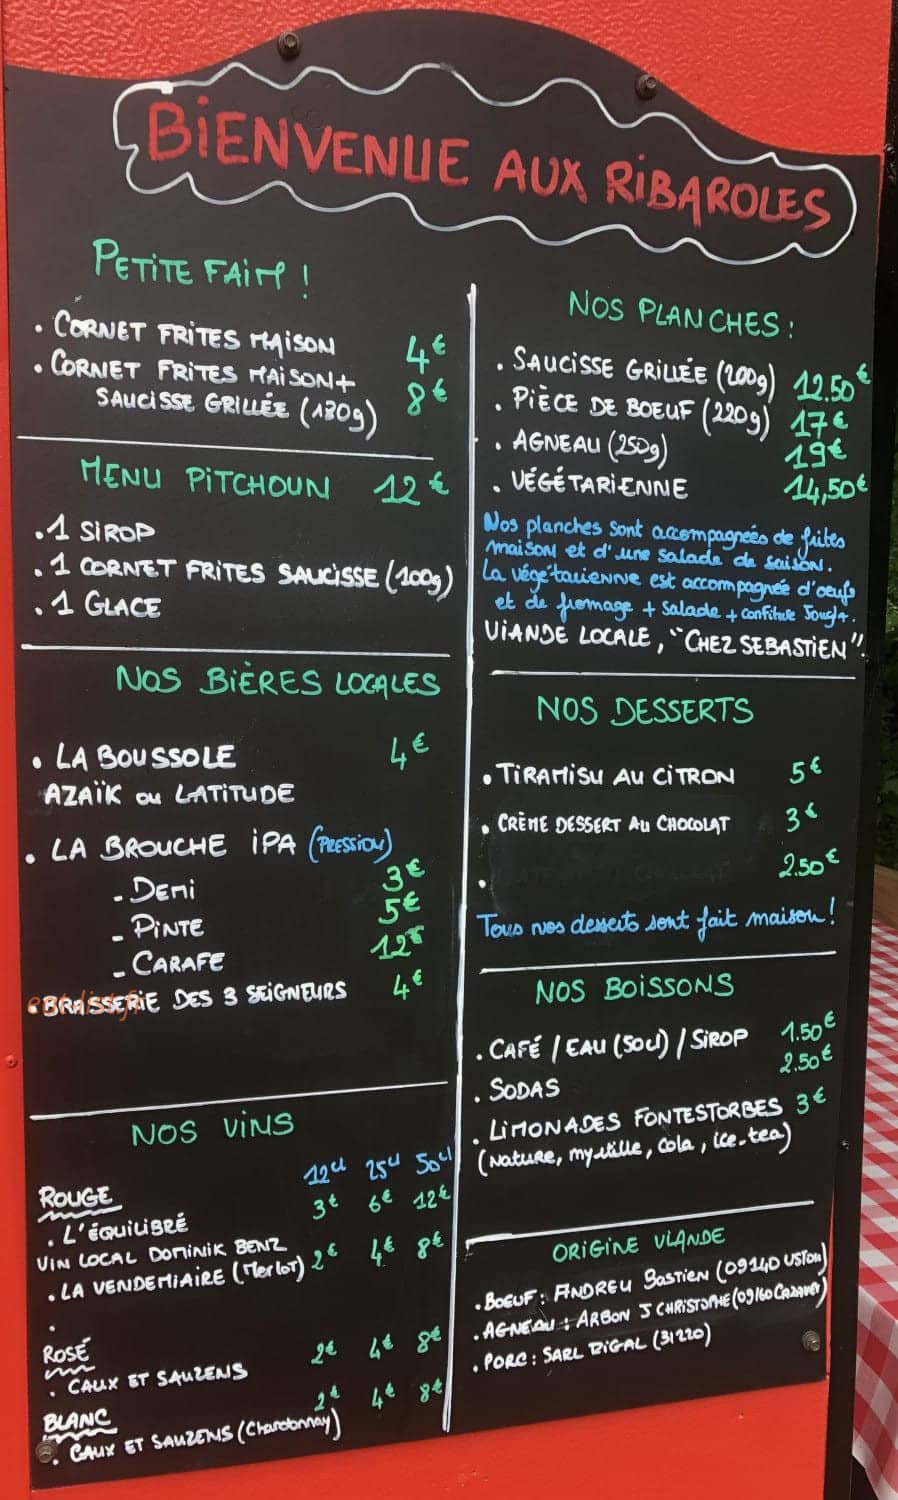 BIENVENUE AUX RIBAROLES
PETITE FAIM !
. CORNET FRITES MAISON 4€
. CORNET FRITES MAISON +
SAUCISSE GRILLÉE (180g) 8€
MENU PITCHOUN 12€
. 1 SIROP
. 1 CORNET FRITES SAUCISSE (100g)
. 1 GLACE
NOS BIÈRES LOCALES
. LA BOUSSOLE 4€
AZAÏK ou LATITUDE
. LA BROUCHE IPA (PRESSION)
- DEMI 3€
- PINTE 5€
- CARAFE 12€
. BRASSERIE DES 3 SEIGNEURS 4€
NOS VINS
12cl 25cl 50cl
ROUGE
. L'ÉQUILIBRÉ 3€ 6€ 12€
VIN LOCAL DOMINIK BENZ
. LA VENDEMIAIRE (Merlot) 2€ 4€ 8€
.
ROSÉ
. CAUX ET SAUZENS 2€ 4€ 8€
BLANC
. CAUX ET SAUZENS (Chardonnay) 2€ 4€ 8€
NOS PLANCHES :
. SAUCISSE GRILLÉE (200g) 12.50€
. PIÈCE DE BOEUF (220g) 17€
. AGNEAU (250g) 19€
. VÉGÉTARIENNE 14,50€
Nos planches sont accompagnées de frites
maison et d'une salade de saison.
La végétarienne est accompagnée d'oeufs
et de fromage + salade + confiture
VIANDE LOCALE, "CHEZ SEBASTIEN".
NOS DESSERTS
. TIRAMISU AU CITRON 5€
. CRÈME DESSERT AU CHOCOLAT 3€
. 2.50€
Tous nos desserts sont fait maison !
NOS BOISSONS
. CAFÉ / EAU (50cl) / SIROP 1.50€
. SODAS 2.50€
. LIMONADES FONTESTORBES 3€
(Nature, myrtille, Cola, ice-tea)
ORIGINE VIANDE
. BOEUF : ANDREU Bastien (09140 USTOU)
. AGNEAU : ARBON J CHRISTOPHE (09160 CAZAVET)
. PORC : SARL RIGAL (31220)